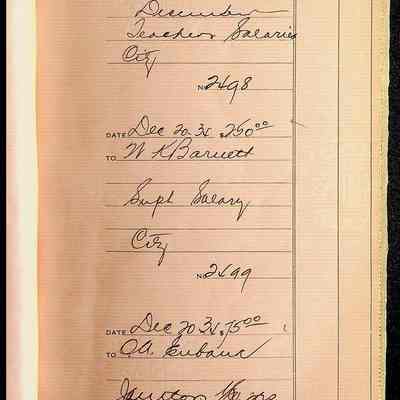 December
Teachers Salaries
City
No 2498
DATE Dec 20 34 $250⁰⁰
TO W K Barnett
Supt Salary
City
No 2499
DATE Dec 20 34 $75⁰⁰
TO